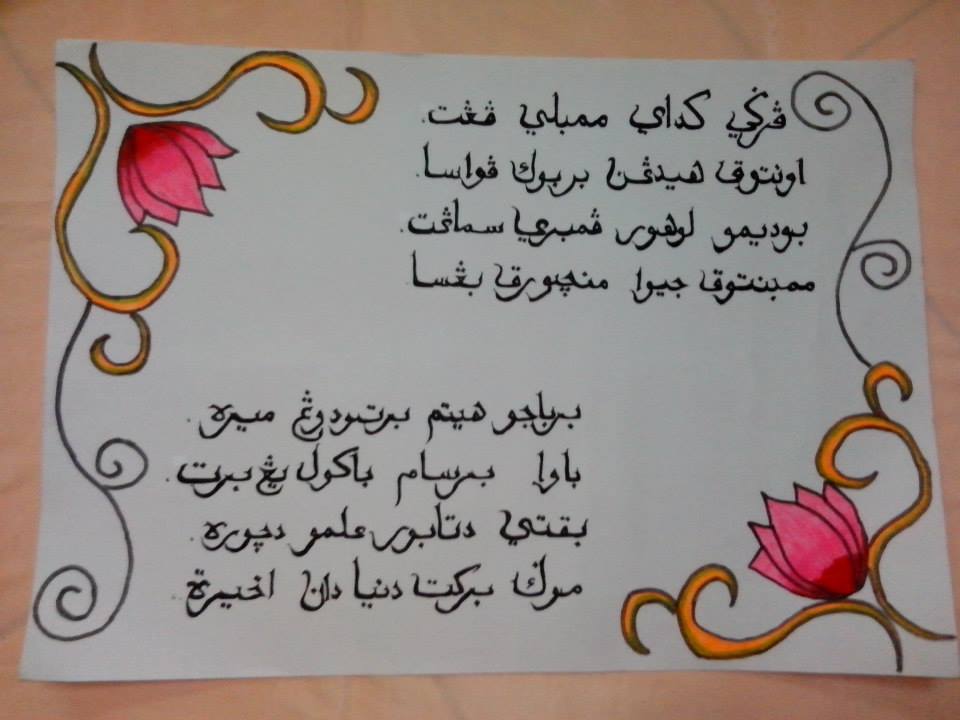 ڤرݢي کداي ممبلي ڤڠت.
اونتوق هيدڠن بربوك ڤواسا.
بوديمو لوهور ڤمبري سماڠت.
ممبنتوق جيوا منچورق بڠسا
برباجو هيتم برتودوڠ ميره.
باوا برسام باکول يڠ برت.
بقتي دتابور علمو دچوره.
موݢ برکت دنيا دان اخيرة.